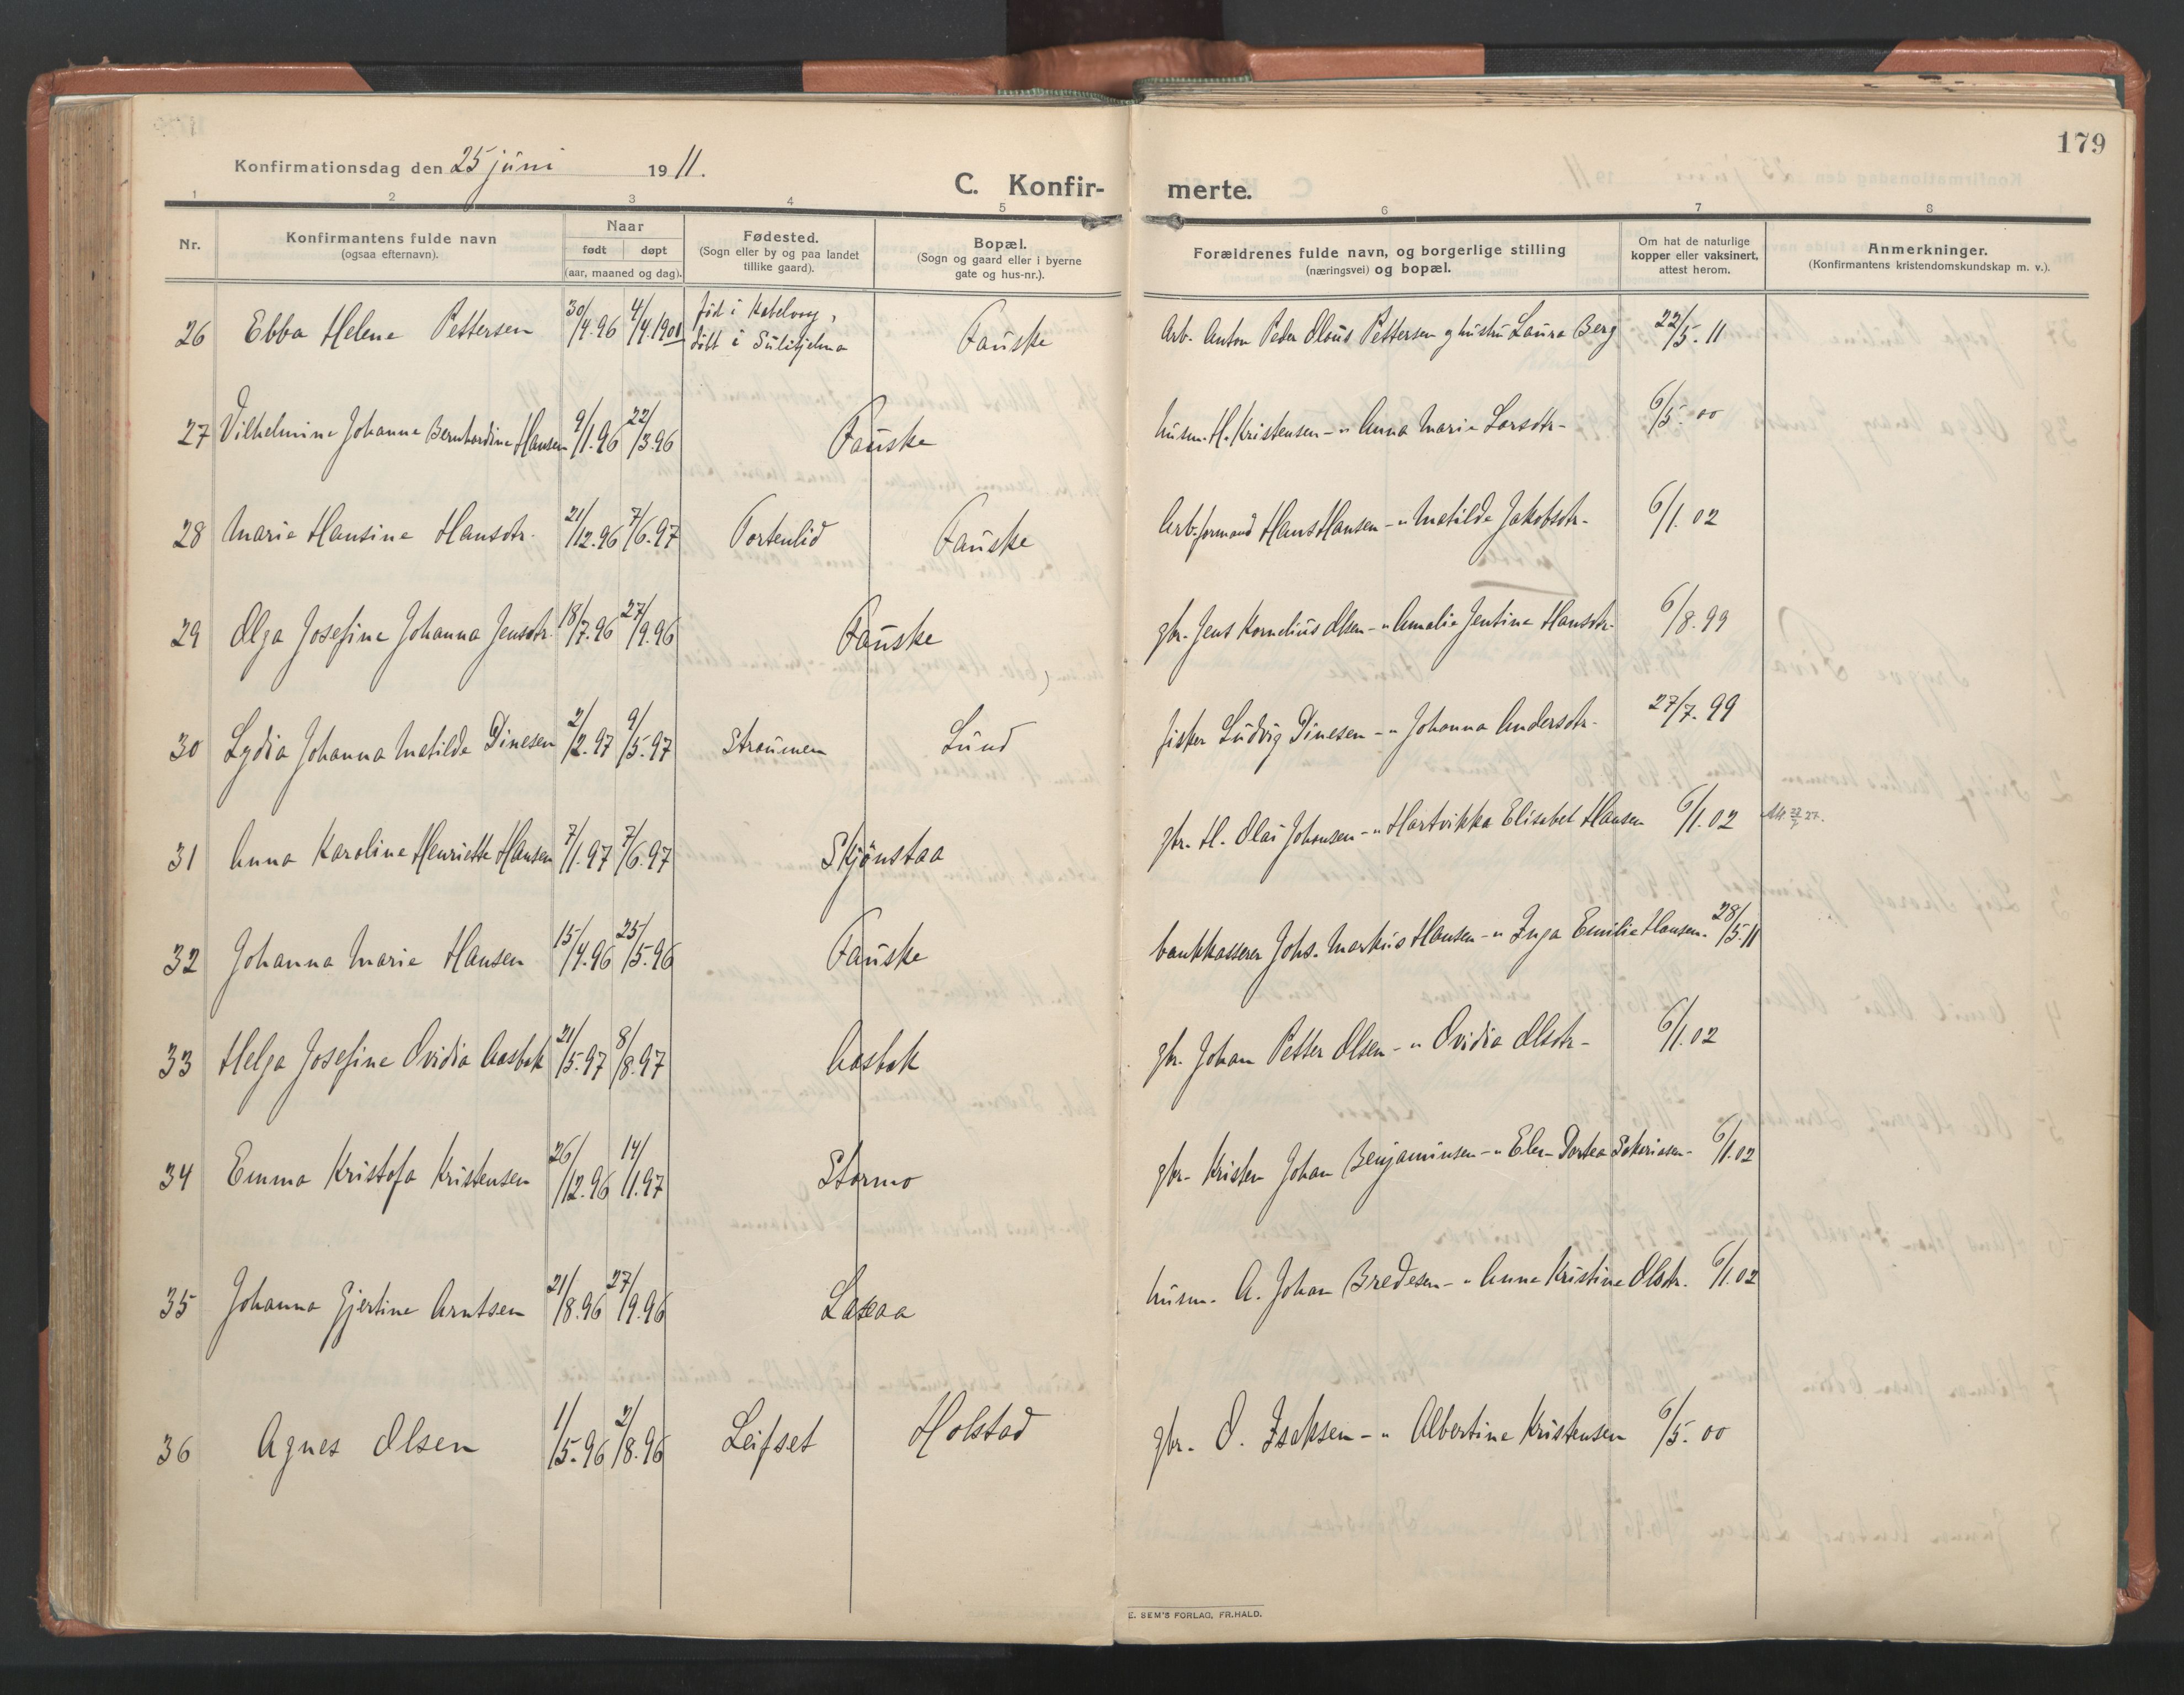 179
Konfirmationsdag den 25 juni 1911.
C. Konfir- merte.
1 2 3 4 5 6 7 8
Nr.
Konfirmantens fulde navn
(ogsaa efternavn).
Naar
født døpt
(aar, maaned og dag).
Fødested.
(Sogn eller by og paa landet
tillike gaard).
Bopæl.
(Sogn og gaard eller i byerne
gate og hus-nr.).
Forældrenes fulde navn, og borgerlige stilling
(næringsvei) og bopæl.
Om hat de naturlige
kopper eller vaksinert,
attest herom.
Anmerkninger.
(Konfirmantens kristendomskundskap m. v.).
26 Ebba Helene Pettersen 30/4.96 4/4.1901 född i Kabelvaag, döbt i Sulitjelma Fauske Arb. Anton Peder Olaus Pettersen og hustru Laura Berg 22/5.11
27 Vilhelmine Johanne Bernhardine Hansen 9/1.96 22/3.96 Fauske husm. H. Kristensen - " Anna Marie Larsdtr. 6/5.00
28 Marie Hansine Hansdtr. 21/12.96 7/6.97 Tortenlid Fauske Arb.formand Hans Hansen - " Matilde Jakobsdtr. 6/1.02
29 Olga Josefine Johanna Jensdtr. 18/7.96 27/9.96 Fauske gbr. Jens Kornelius Olsen - " Amalie Jentine Hansdtr. 6/8.99
30 Lydia Johanna Matilde Dinesen 2/2.97 9/5.97 Straumen Lund fisker Ludvig Dinesen - " Johanna Andersdtr. 27/7.99
31 Anna Karoline Henriette Hansen 7/1.97 7/6.97 Skjönstaa gbr. H. Olai Johansen - " Hartvikka Elisabet Hansen 6/1.02
32 Johanna Marie Hansen 15/4.96 25/5.96 Fauske bankkasserer Johs. Markus Hansen - " Inga Emilie Hansen. 28/5.11
33 Helga Josefine Ovidia Aasbak 21/5.97 8/8.97 Aasbak gbr. Johan Petter Olsen - " Ovidia Olsdtr. 6/1.02
34 Emma Kristofa Kristensen 26/12.96 14/1.97 Stormo gbr. Kristen Johan Benjaminsen - " Elen Dortea Sakariasen. 6/1.02
35 Johanna Gjertine Arntsen 21/8.96 27/9.96 Laxaa husm. A. Johan Bredesen - " Anne Kristine Olsdtr. 6/1.02
36 Agnes Olsen 1/5.96 2/8.96 Leifset Holstad gbr. O. Isaksen - " Albertine Kristensen 6/5.00
E. SEM'S FORLAG, FR.HALD.